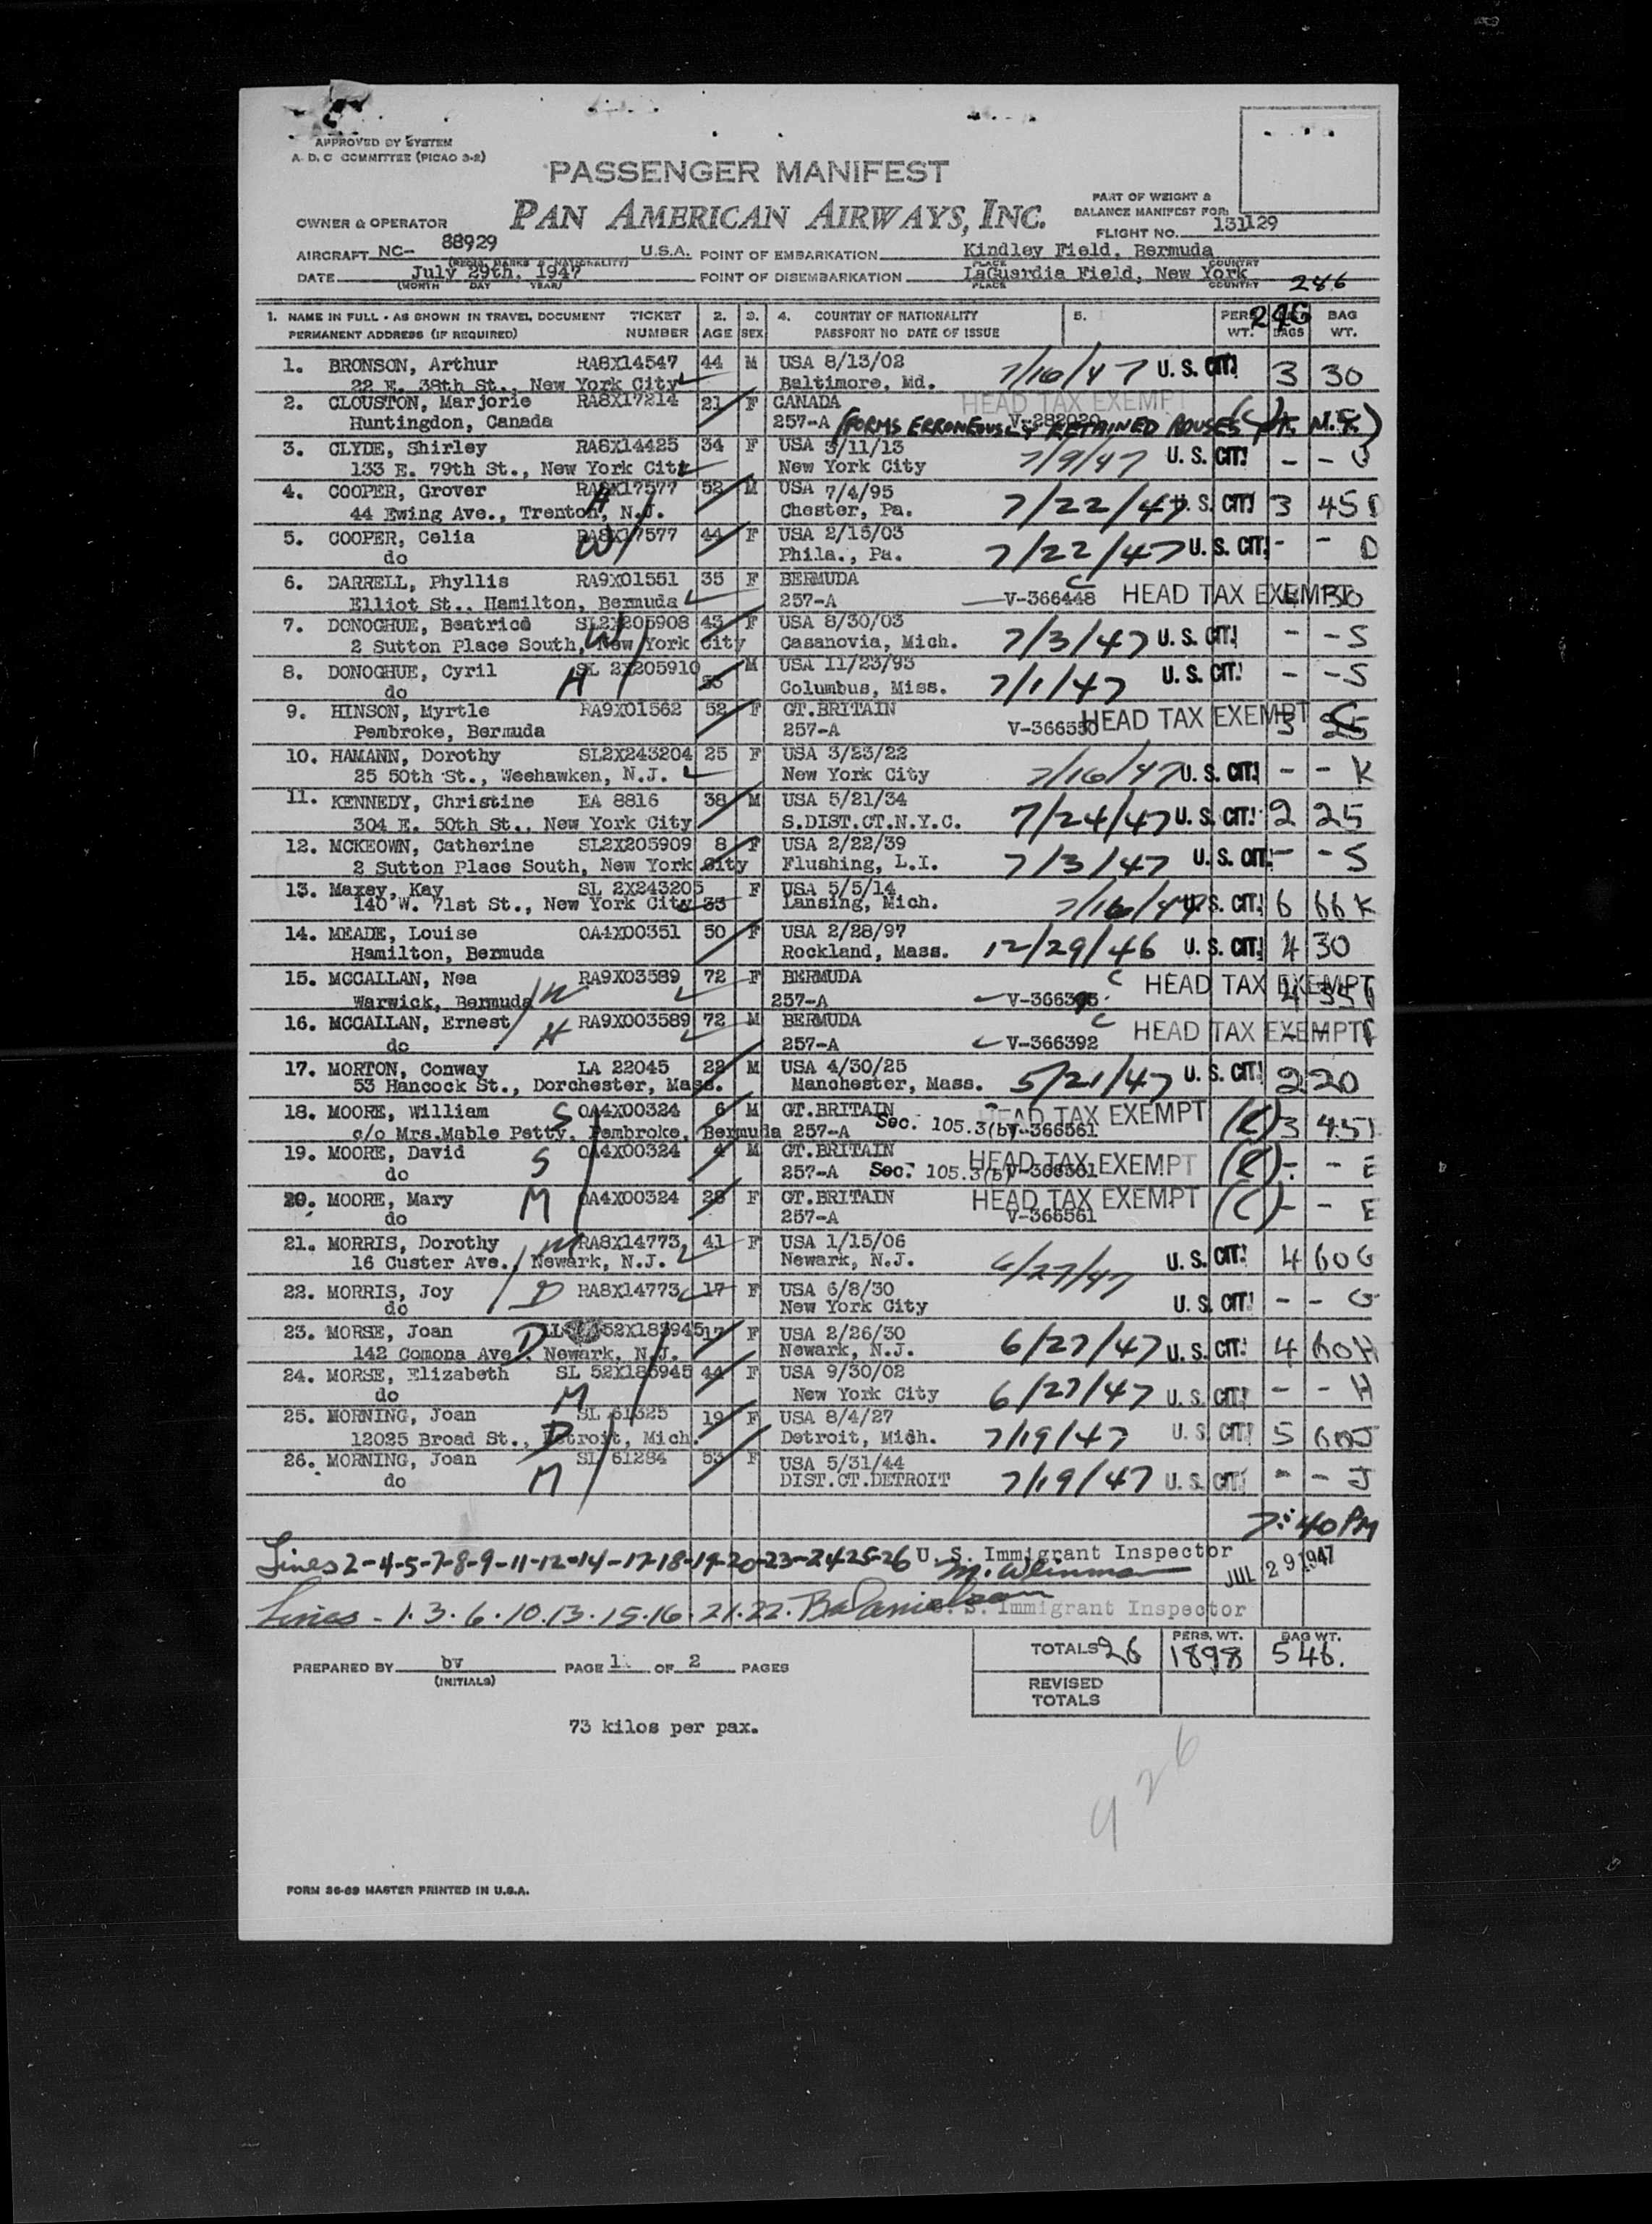 APPROVED BY SYSTEM
A. D. C COMMITTEE (PICAO 3-2)
PASSENGER MANIFEST
OWNER & OPERATOR PAN AMERICAN AIRWAYS, INC.
PART OF WEIGHT &
BALANCE MANIFEST FOR:
FLIGHT NO. 131129
AIRCRAFT NC- 88929 U.S.A. POINT OF EMBARKATION Kindley Field, Bermuda
(REGIS. MARKS & NATIONALITY) PLACE COUNTRY
DATE July 29th, 1947 POINT OF DISEMBARKATION LaGuardia Field, New York
(MONTH DAY YEAR) PLACE COUNTRY 286
1. NAME IN FULL - AS SHOWN IN TRAVEL DOCUMENT TICKET 2. 3. 4. COUNTRY OF NATIONALITY 5. PERS. 246 BAG
PERMANENT ADDRESS (IF REQUIRED) NUMBER AGE SEX PASSPORT NO DATE OF ISSUE WT. BAGS WT.
1. BRONSON, Arthur RA8X14547 44 M USA 8/13/02 7/16/47 U. S. CIT. 3 30
22 E. 38th St., New York City Baltimore, Md.
2. CLOUSTON, Marjorie RA8X17214 21 F CANADA HEAD TAX EXEMPT
Huntingdon, Canada 257-A V-282020 (FORMS ERRONEOUSLY RETAINED ROUSES PT. N.Y.)
3. CLYDE, Shirley RA8X14425 34 F USA 3/11/13 7/9/47 U. S. CIT. - -
133 E. 79th St., New York City New York City
4. COOPER, Grover RA8X17577 52 M USA 7/4/95 7/22/47 U. S. CIT. 3 45 D
44 Ewing Ave., Trenton, N.J. H Chester, Pa.
5. COOPER, Celia RA8X17577 44 F USA 2/15/03 7/22/47 U. S. CIT. - - D
do W Phila., Pa.
6. DARRELL, Phyllis RA9X01551 35 F BERMUDA C
Elliot St., Hamilton, Bermuda 257-A V-366448 HEAD TAX EXEMPT 30
7. DONOGHUE, Beatrice SL2X205908 43 F USA 8/30/03 7/3/47 U. S. CIT. - - S
2 Sutton Place South, New York City W Casanovia, Mich.
8. DONOGHUE, Cyril SL 2X205910 53 M USA 11/23/93 7/1/47 U. S. CIT. - - S
do H Columbus, Miss.
9. HINSON, Myrtle RA9X01562 52 F GT.BRITAIN HEAD TAX EXEMPT C
Pembroke, Bermuda 257-A V-366550 3 25
10. HAMANN, Dorothy SL2X243204 25 F USA 3/23/22 7/16/47 U. S. CIT. - - K
25 50th St., Weehawken, N.J. New York City
11. KENNEDY, Christine EA 8816 38 M USA 5/21/34 7/24/47 U. S. CIT. 2 25
304 E. 50th St., New York City S.DIST.CT.N.Y.C.
12. MCKEOWN, Catherine SL2X205909 8 F USA 2/22/39 7/3/47 U. S. CIT. - - S
2 Sutton Place South, New York City Flushing, L.I.
13. Maxey, Kay SL 2X243205 33 F USA 5/5/14 7/16/47 U. S. CIT. 6 66 K
140 W. 71st St., New York City Lansing, Mich.
14. MEADE, Louise OA4X00351 50 F USA 2/28/97 12/29/46 U. S. CIT. 4 30
Hamilton, Bermuda Rockland, Mass.
15. MCCALLAN, Nea RA9X03589 72 F BERMUDA C HEAD TAX EXEMPT
Warwick, Bermuda W 257-A
16. MCCALLAN, Ernest H RA9X003589 72 M BERMUDA C HEAD TAX EXEMPT
do 257-A V-366392
17. MORTON, Conway LA 22045 22 M USA 4/30/25 5/21/47 U. S. CIT. 2 20
53 Hancock St., Dorchester, Mass. Manchester, Mass.
18. MOORE, William S OA4X00324 6 M GT.BRITAIN HEAD TAX EXEMPT (C) 3 45
c/o Mrs.Mable Petty, Pembroke, Bermuda 257-A Sec. 105.3(b) V-366561
19. MOORE, David S OA4X00324 4 M GT.BRITAIN HEAD TAX EXEMPT (C) - - E
do 257-A Sec. 105.3(b) V-366561
20. MOORE, Mary M OA4X00324 28 F GT.BRITAIN HEAD TAX EXEMPT (C) - - E
do 257-A V-366561
21. MORRIS, Dorothy M RA8X14773 41 F USA 1/15/06 6/27/47 U. S. CIT. 4 60 G
16 Custer Ave., Newark, N.J. Newark, N.J.
22. MORRIS, Joy D RA8X14773 17 F USA 6/8/30 U. S. CIT. - - G
do New York City
23. MORSE, Joan D 52X183945 17 F USA 2/26/30 6/27/47 U. S. CIT. 4 60 H
142 Comona Ave., Newark, N.J. Newark, N.J.
24. MORSE, Elizabeth SL 52X183945 44 F USA 9/30/02 6/27/47 U. S. CIT. - - H
do M New York City
25. MORNING, Joan SL 61325 19 F USA 8/4/27 7/19/47 U. S. CIT. 5 60 J
12025 Broad St., Detroit, Mich. D Detroit, Mich.
26. MORNING, Joan SL 61284 53 F USA 5/31/44 7/19/47 U. S. CIT. - - J
do M DIST.CT.DETROIT
7:40 PM
Lines 2-4-5-7-8-9-11-12-14-17-18-19-20-23-24 25-26 U. S. Immigrant Inspector
M. Weinman JUL 29 1947
Lines - 1. 3. 6. 10. 13. 15. 16. 21. 22. U. S. Immigrant Inspector
TOTALS 26 PERS. WT. 1898 BAG WT. 546.
PREPARED BY bv PAGE 1 OF 2 PAGES
(INITIALS) REVISED
TOTALS
73 kilos per pax.
926
FORM 26-69 MASTER PRINTED IN U.S.A.